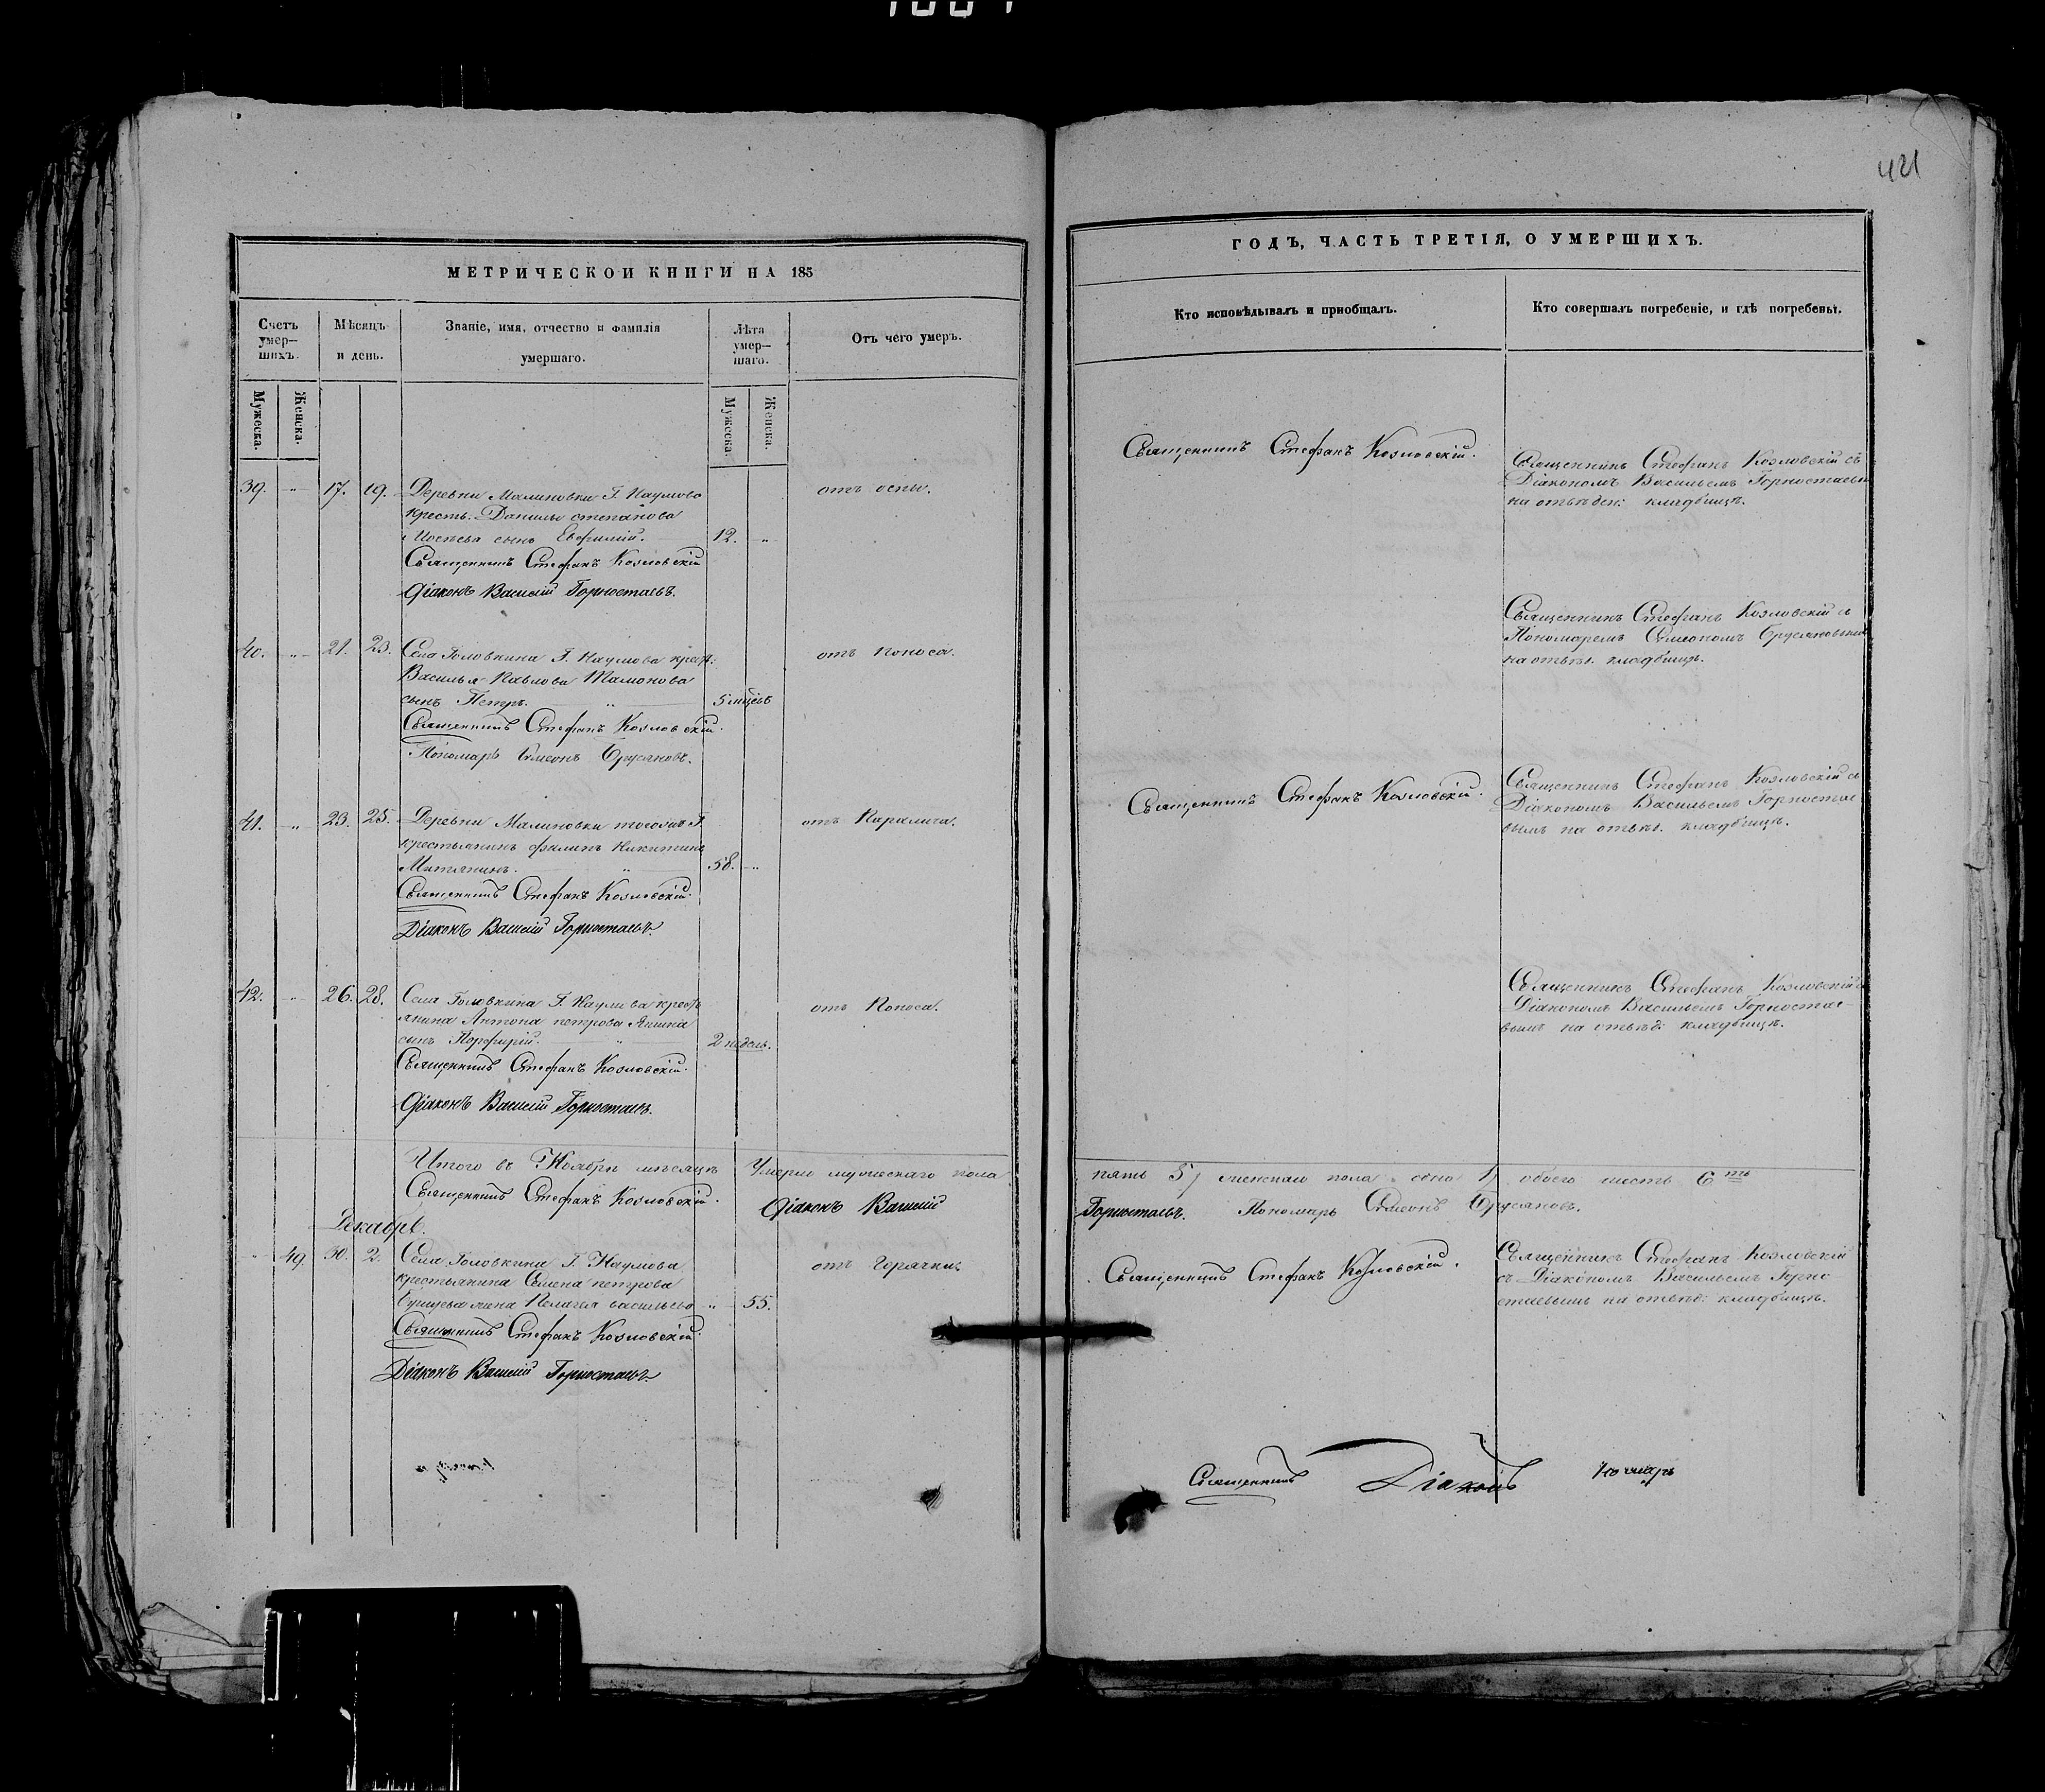 421
МЕТРИЧЕСКОИ КНИГИ НА 185
Счетъ умер—шихъ.
Мѣсяцъ и день.
Званіе, имя, отчество и фамилія умершаго.
Лѣта умер—шаго.
Отъ чего умеръ.
Мужеска.
Женска.
Мужеска.
Женска.
39. 17. 19. Деревни Малиновки Г. Наумова
отъ оспы.
крестъ. Данилы степанова
сынъ Евфимій. 12.
Священникъ Стефанъ Козловскій
Діаконъ Василій Горностаевъ.
40. 21. 23. Села Головкина Г. Наумова крест.
отъ поноса.
Василья Павлова
сынъ Петръ. 5 мѣсяцъ
Священникъ Стефанъ Козловскій.
Пономарь Симеонъ Брусяновъ.
41. 23. 25. Деревни Малиновки тогожъ Г.
отъ Паралича.
крестьянинъ филипъ Никитинъ
58.
Священникъ Стефанъ Козловскій.
Діаконъ Василій Горностаевъ.
42. 26. 28. Села Головкина Г. Наумова кресть
отъ Поноса.
янина Антона петрова Яшина
сынъ Порфирій. 2 недѣль.
Священникъ Стефанъ Козловскій.
Діаконъ Василій Горностаевъ.
Итого въ Ноябрѣ мѣсяцѣ Умерло мужескаго пола
Священникъ Стефанъ Козловскій. Діаконъ Василій
Декабрь.
49 30. 2. Села Головкина Г. Наумова
отъ Горячки
крестьянина петрова
жена Пелагея васильева 55.
Священникъ Стефанъ Козловскій.
Діаконъ Василій Горностаевъ.
ГОДЪ, ЧАСТЬ ТРЕТІЯ, О УМЕРШИХЪ.
Кто исповѣдывалъ и пріобщалъ.
Кто совершалъ погребеніе, и гдѣ погребены.
Священникъ Стефанъ Козловскій.
Священникъ Стефанъ Козловскій съ
Діакономъ Васильемъ Горностаевы
на отвѣден: кладбищѣ.
Священникъ Стефанъ Козловскій съ
Пономаремъ Симеономъ Брусяновымъ
на отвѣд. кладбищѣ.
Священникъ Стефанъ Козловскій.
Священникъ Стефанъ Козловскій съ
Діакономъ Васильемъ Горностае
вымъ на отвѣд. кладбищѣ.
Священникъ Стефанъ Козловскій с
Діакономъ Васильемъ Горностае-
вымъ на отвѣд: кладбищѣ.
пять 5/ женскаго пола одно 1/ обоего шесть 6
Горностаевъ. Пономарь Симеонъ Брусяновъ.
Священникъ Стефанъ Козловскій.
Священникъ Стефанъ Козловскій
съ Діакономъ Васильемъ Горно
стаевымъ на отвѣд: кладбищѣ.
Священникъ Діаконъ Пономарь